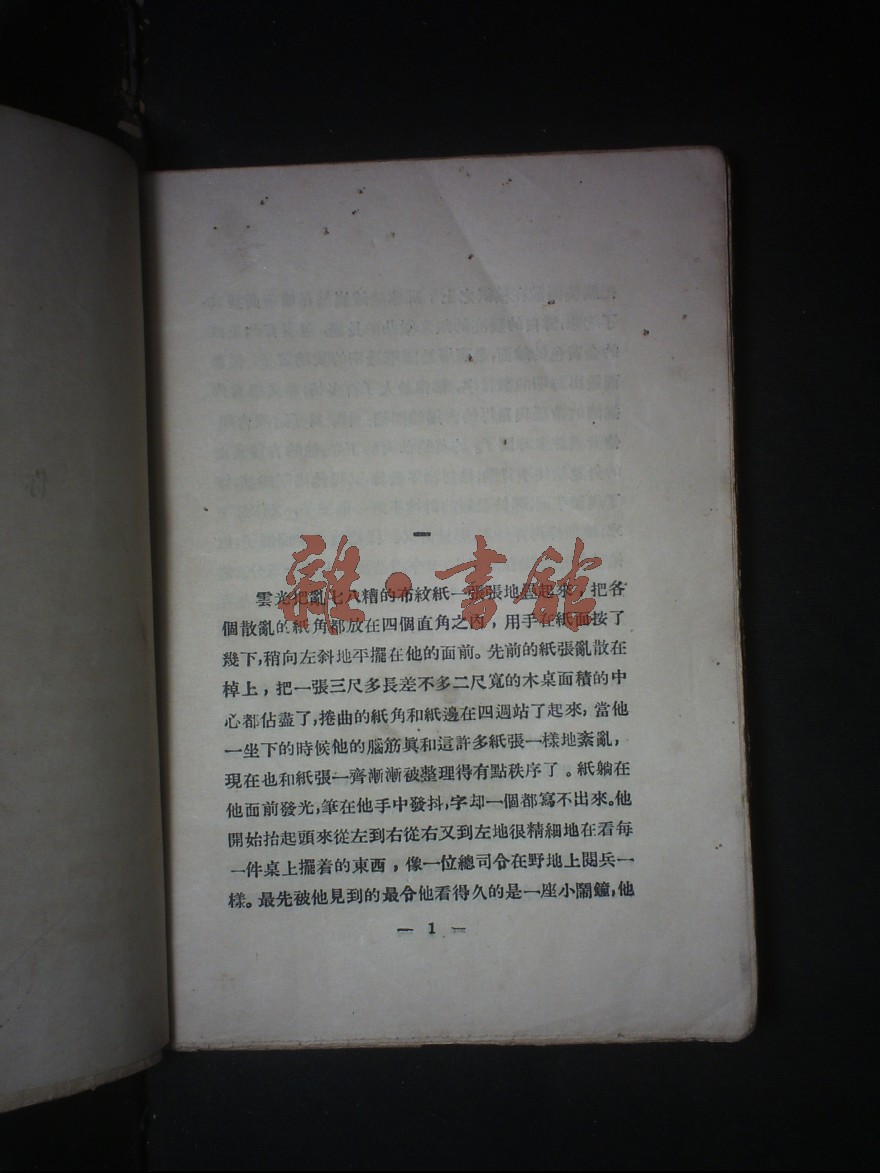 一
雜·書館
雲光把亂七八糟的布紋紙一張張地疊起來，把各
個散亂的紙角都放在四個直角之內，用手在紙面按了
幾下，稍向左斜地平擺在他的面前。先前的紙張亂散在
棹上，把一張三尺多長差不多二尺寬的木桌面積的中
心都佔盡了，捲曲的紙角和紙邊在四週站了起來，當他
一坐下的時候他的腦筋眞和這許多紙張一樣地紊亂，
現在也和紙張一齊漸漸被整理得有點秩序了。紙躺在
他面前發光，筆在他手中發抖，字却一個都寫不出來。他
開始抬起頭來從左到右從右又到左地很精細地在看每
一件桌上擺着的東西，像一位總司令在野地上閱兵一
樣。最先被他見到的最令他看得久的是一座小鬧鐘，他
— 1 —